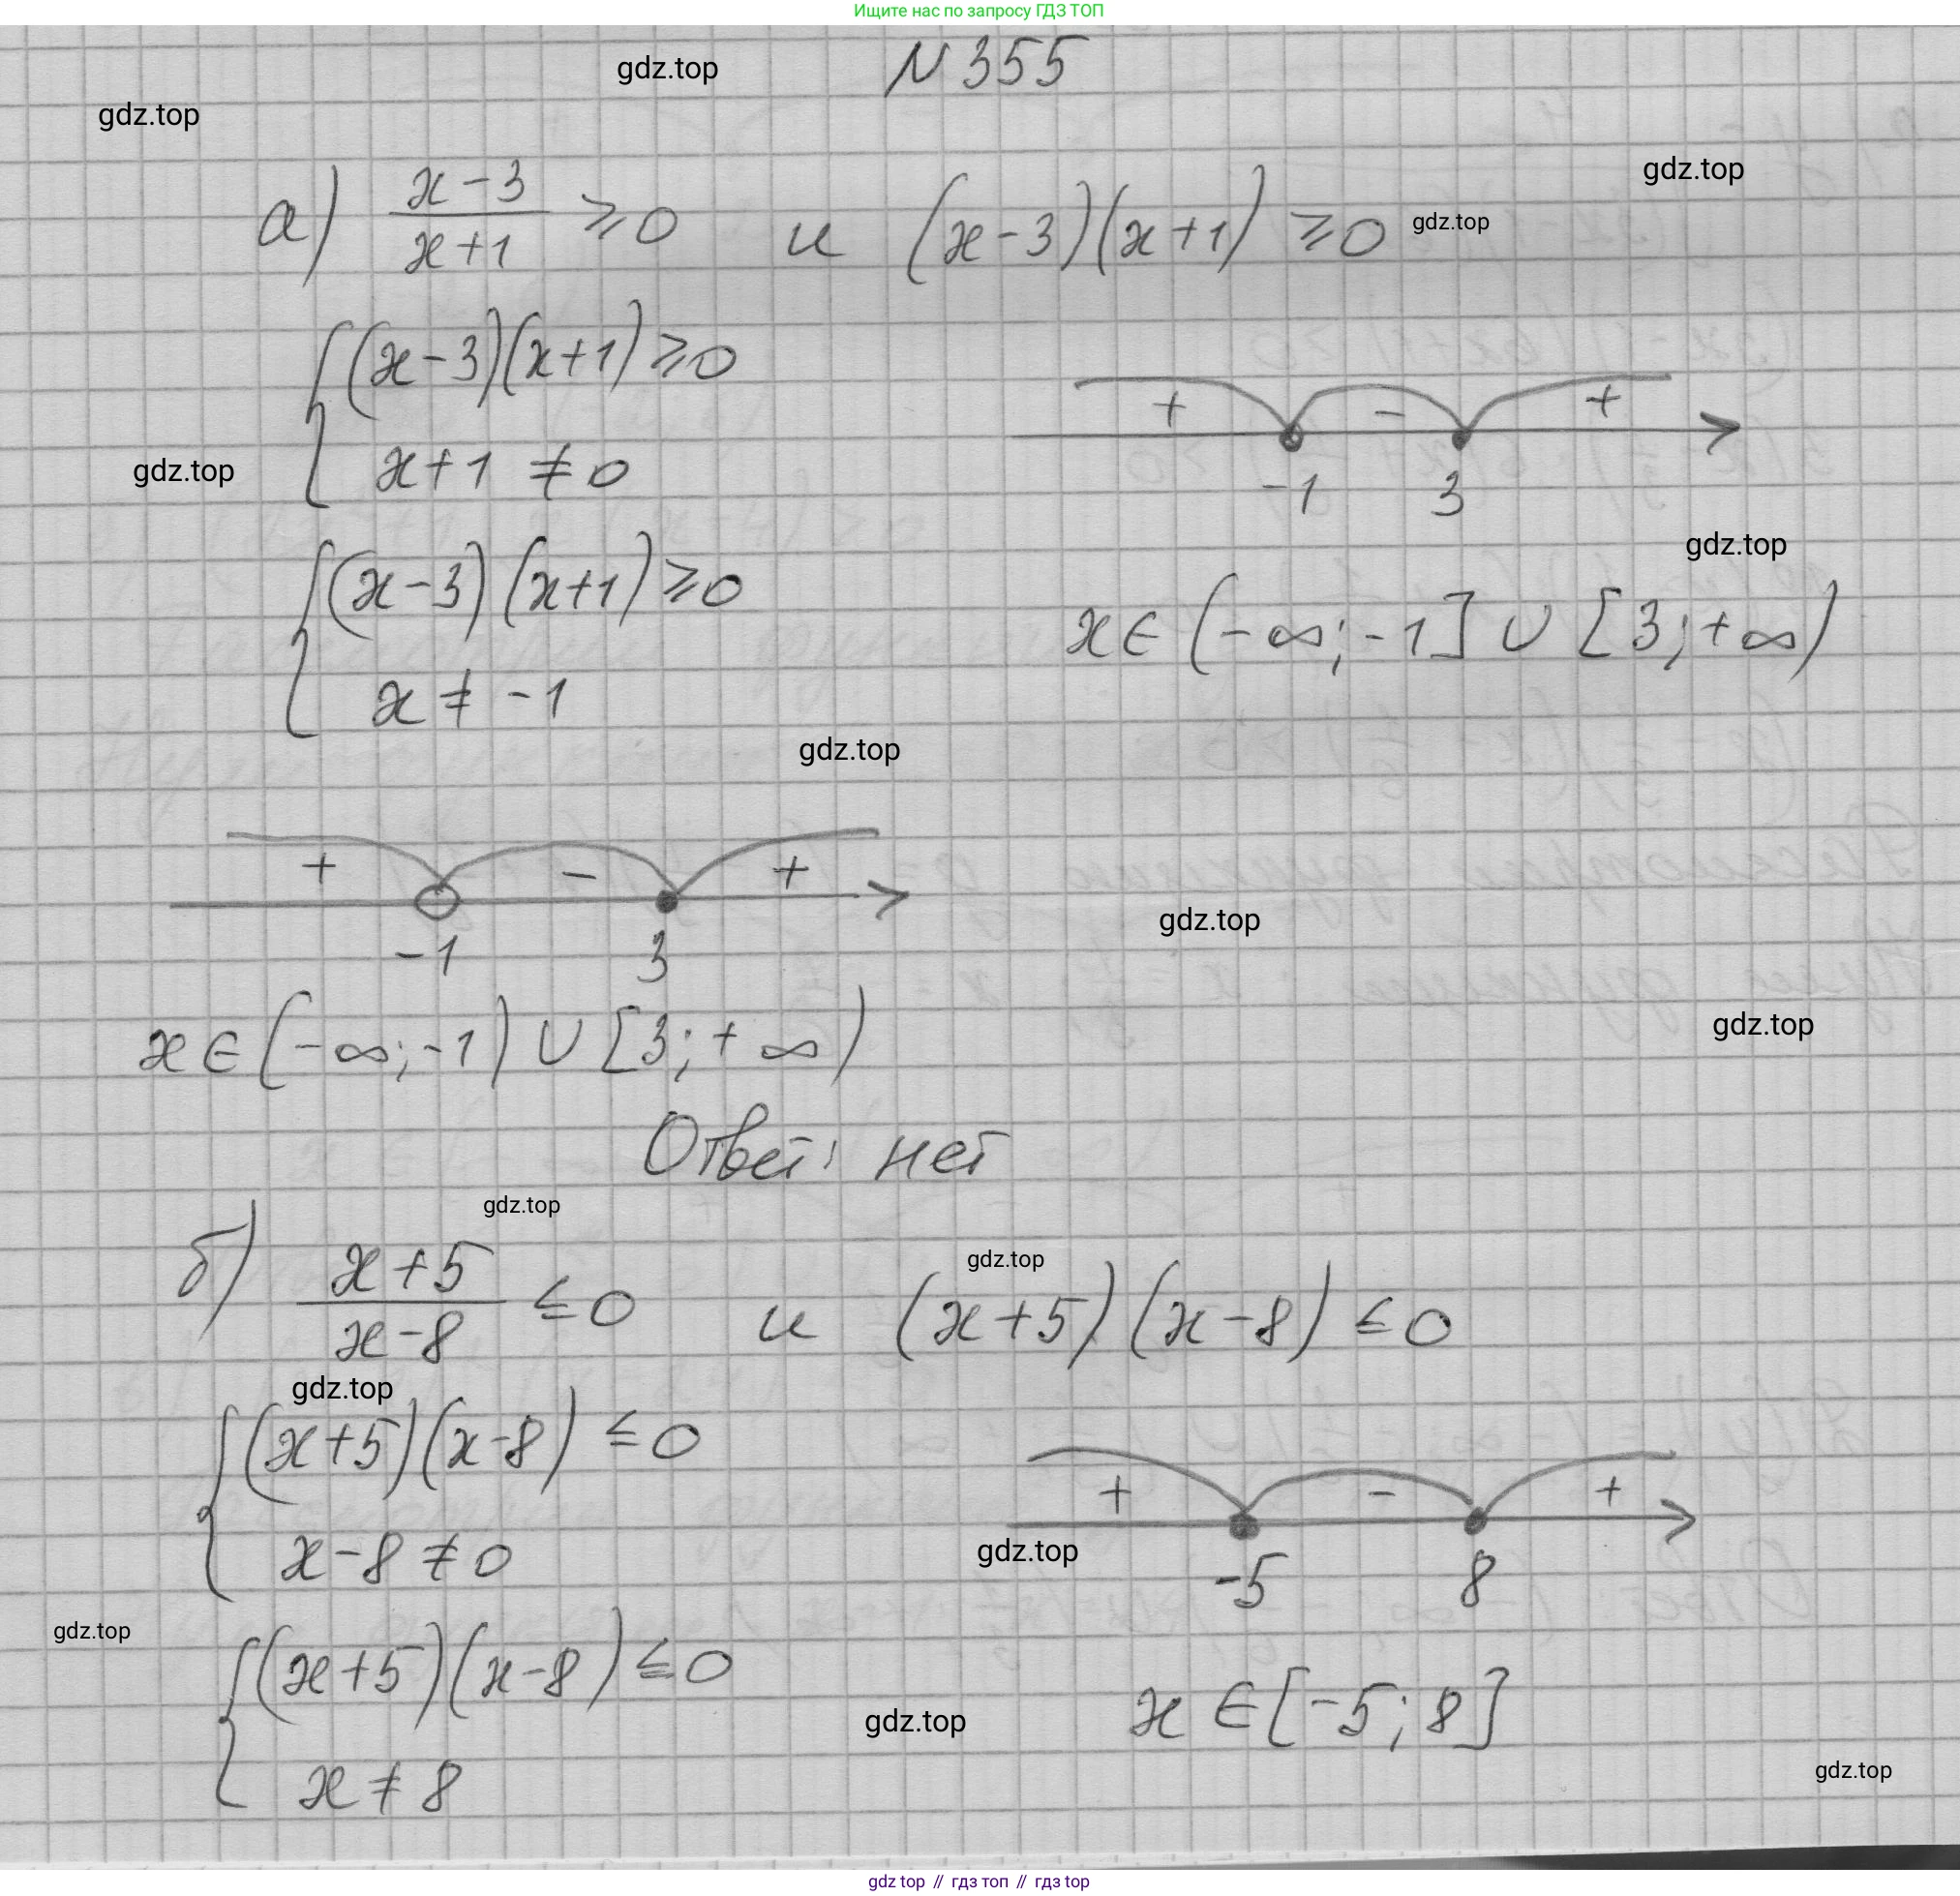 Ищите нас по запросу ГДЗ ТОП
N 355
gdz.top
gdz.top
gdz.top
а) (x-3)/(x+1) ≥ 0 и (x-3)(x+1) ≥ 0
gdz.top
{ (x-3)(x+1) ≥ 0
x+1 ≠ 0
gdz.top
+ - +
-1 3
gdz.top
{ (x-3)(x+1) ≥ 0
x ≠ -1
x ∈ (-∞; -1] ∪ [3; +∞)
gdz.top
+ - +
-1 3
gdz.top
gdz.top
x ∈ (-∞; -1) ∪ [3; +∞)
Ответ: нет
gdz.top
б) (x+5)/(x-8) ≤ 0 и (x+5)(x-8) ≤ 0
gdz.top
gdz.top
{ (x+5)(x-8) ≤ 0
x-8 ≠ 0
+ - +
gdz.top
-5 8
gdz.top
{ (x+5)(x-8) ≤ 0
x ≠ 8
x ∈ [-5; 8]
gdz.top
gdz.top
gdz top // гдз топ // гдз top